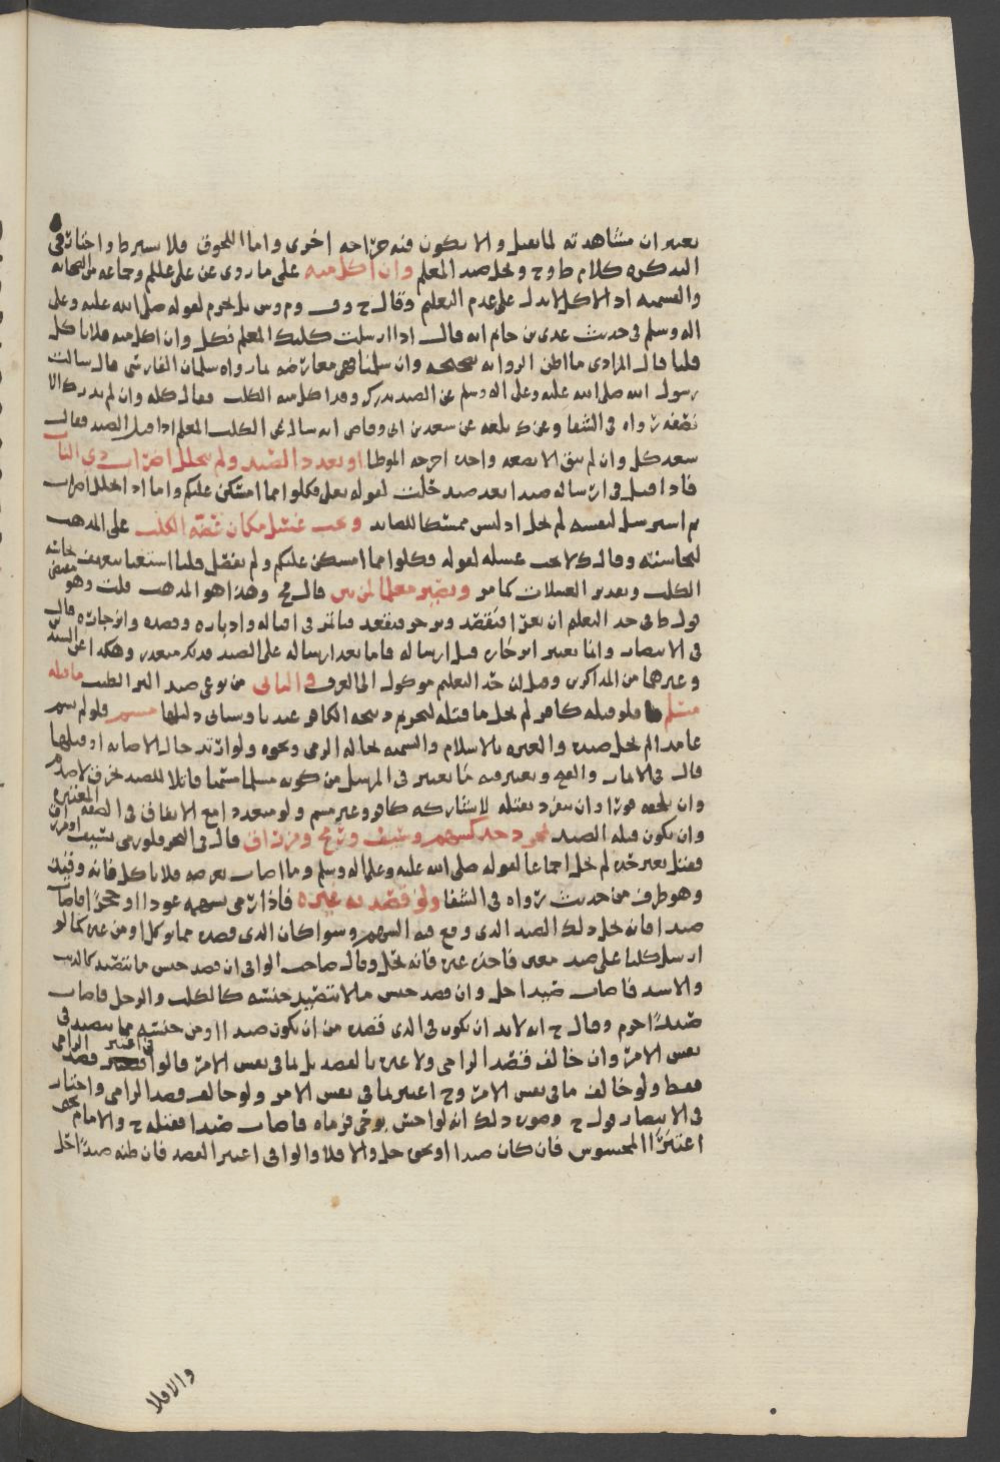 يعتبر ان مشاهدته لما يفعل والا يكون فيه جراحه اخرى واما اللحوق فلا يشترط واختاره في
التذكره كلام ط و ح ويحل صيد المعلم وان اكل منه على ما روى عن علي عليلم وجماعه من الصحابه
والقسميه اذ الاكل لا يدل على عدم التعليم وقال ح و ف وم وس بل يحرم لقوله صلى الله عليه وعلى
اله وسلم في حديث عدي بن حاتم انه قال اذا ارسلت كلبك المعلم فكل وان اكل منه فلا تاكل
قلنا قال المرادي ما اظن الروايه صحيحه وان سلمنا فهي معارضه بما رواه سلمان الفارسي قال سالت
رسول الله صلى الله عليه وعلى اله وسلم عن الصيد يدرك وقد اكل منه الكلب فقال كله وان لم تدرك الا
نصفه رواه في الشفا وعن ك بلغه عن سعد بن ابي وقاص انه سال عن الكلب المعلم اذا قتل الصيد فقال
سعد كل وان لم يبق الا بضعه واحده اخرجه الموطا او تعدد الصيد ولم يتخلل اضراب ذي الناب
فاذا قتل في ارساله صيدا بعد صيد حلت لقوله تعالى فكلوا مما امسكن عليكم واما اذا تخلل اضراب
ثم استرسل لنفسه لم يحل اذ ليس ممسكا للصايد ويجب غسل مكان عضة الكلب على المذهب
لنجاسته وقال ك لا يجب غسله لقوله فكلوا مما امسكن عليكم ولم يفصل قلنا استغنا بتعريف نجاسه
الكلب وتعدد الغسلات كما مر ويصير معلما لمرتين قال مح وهذا هو المذهب قلت وهو مقتضى
قول ط في حد التعليم ان يغرا فيقصد ويزجر فيقعد فياتمر في اقباله وادباره وقصده وانزجاره قال
في الانتصار وانما يعتبر انزجاره قبل ارساله فاما بعد ارساله على الصيد فذلك متعذر وهكذا عن السيد
وغيرهما من المذاكرين وقيل ان حد التعليم موكول الى العرف والثاني من نوعي صيد البر الطيب ما قتله
مسلم فلو قتله كافر لم يحل ما قتله لتحريم ذبيحه الكافر عندنا وسياتي دليلها مسم فلو لم يسم
عامدا لم يحل صيده والعبره بالاسلام والتسميه بحاله الرمي ونحوه ولو ارتد حال الاصابه او قبلها
قال في الاثمار والفتح ويعتبر فيه ما يعتبر في المرسل من كونه مسلما مسميا قاتلا للصيد بخرق لا صدم
وان يلحقه فورا وان ينفرد بقتله لا يشاركه كافر وغير مسم ولو متعدد مع الاتفاق في الصفه المعتبره
وان يكون قتله الصيد بمجرد ذي حد كسهم وسيف ورمح ومزراق قال في البحر فلو رمى بسيف او مزراق
فقتل بغير حده لم يحل اجماعا لقوله صلى الله عليه وعلى اله وسلم وما اصاب بعرضه فلا تاكل فانه وقيذ
وهو طرف من حديث رواه في الشفا ولو قصد به غيره فاذا رمى بسهمه عودا او حجرا اصاب
صيدا فانه يحل ذلك الصيد الذي وقع فيه السهم وسوا كان الذي قصده مما يوكل او من غيره كما لو
ارسل كلبا على صيد معين فاخذ غيره فانه يحل وقال صاحب الوافي ان قصد جنس ما يتصيد كالذيب
والاسد فاصاب صيدا حل وان قصد جنس ما لا يتصيد جنسه كالكلب والرجل فاصاب
صيدا حرم وقال ح انه لا بد ان يكون في الذي قصده من ان يكون صيدا او من جنسه مما يتصيد في
نفس الامر وان خالف قصد الرامي ولا عبره بالقصد بل بما في نفس الامر قالوا في اعتبر قصد الرامي
فقط ولو خالف ما في نفس الامر وح اعتبر بما في نفس الامر ولو خالف قصد الرامي واختار
في الانتصار قول ح وصوره ذلك انه لو احس بوحي فرماه فاصاب صيدا فقتله ح والامام يحيى
اعتبرا المحسوس فان كان صيدا او وحي حل والا فلا والوافي اعتبر القصد فان ظنه صيدا حل
والا فلا